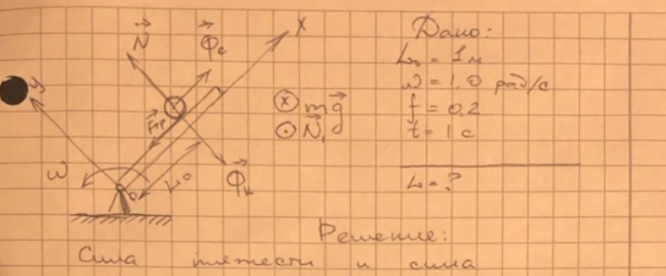 N⃗
Φ⃗e
x
y
Fтр
⊗ mg⃗
⊙ N⃗₁
ω
L₀
Φ⃗k
Дано:
L₀ = 1 м
ω = 1.0 рад/с
f = 0.2
t = 1 с
L = ?
Решение:
Сила тяжести и сила